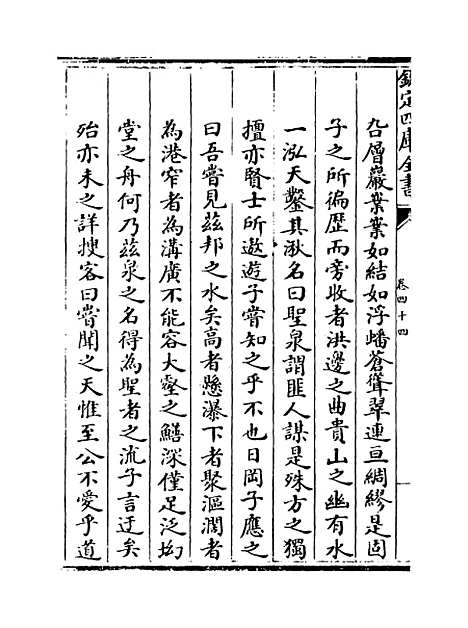 欽定四庫全書
卷四十四
㕣層巖業業如結如浮嶓蒼聳翠連亘綢繆是固
子之所徧歴而旁收者洪邊之曲貴山之幽有水
一泓天鑿其湫名曰聖泉謂匪人謀是殊方之獨
擅亦賢士所遨遊子嘗知之乎不也日岡子應之
曰吾嘗見兹邦之水矣高者懸瀑下者聚漚濶者
為港窄者為溝廣不能容大壑之鱔深僅足泛坳
堂之舟何乃兹泉之名得為聖者之流子言迂矣
殆亦未之詳搜客曰嘗聞之天惟至公不愛乎道